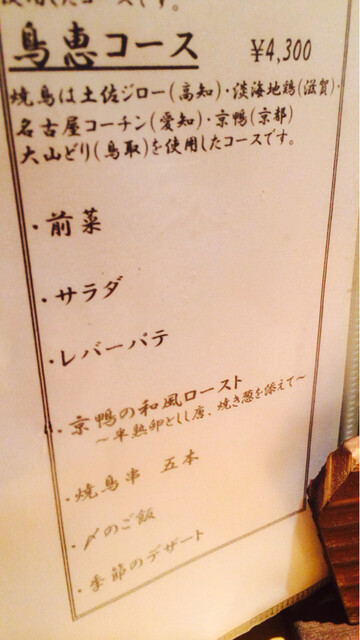 使用したコースです。
鳥恵コース ¥4,300
焼鳥は土佐ジロー(高知)・淡海地鶏(滋賀)・
名古屋コーチン(愛知)・京鴨(京都)
大山どり(鳥取)を使用したコースです。
・前菜
・サラダ
・レバーパテ
・京鴨の和風ロースト
～半熟卵としし唐、焼き葱を添えて～
・焼鳥串 五本
・〆のご飯
・季節のデザート